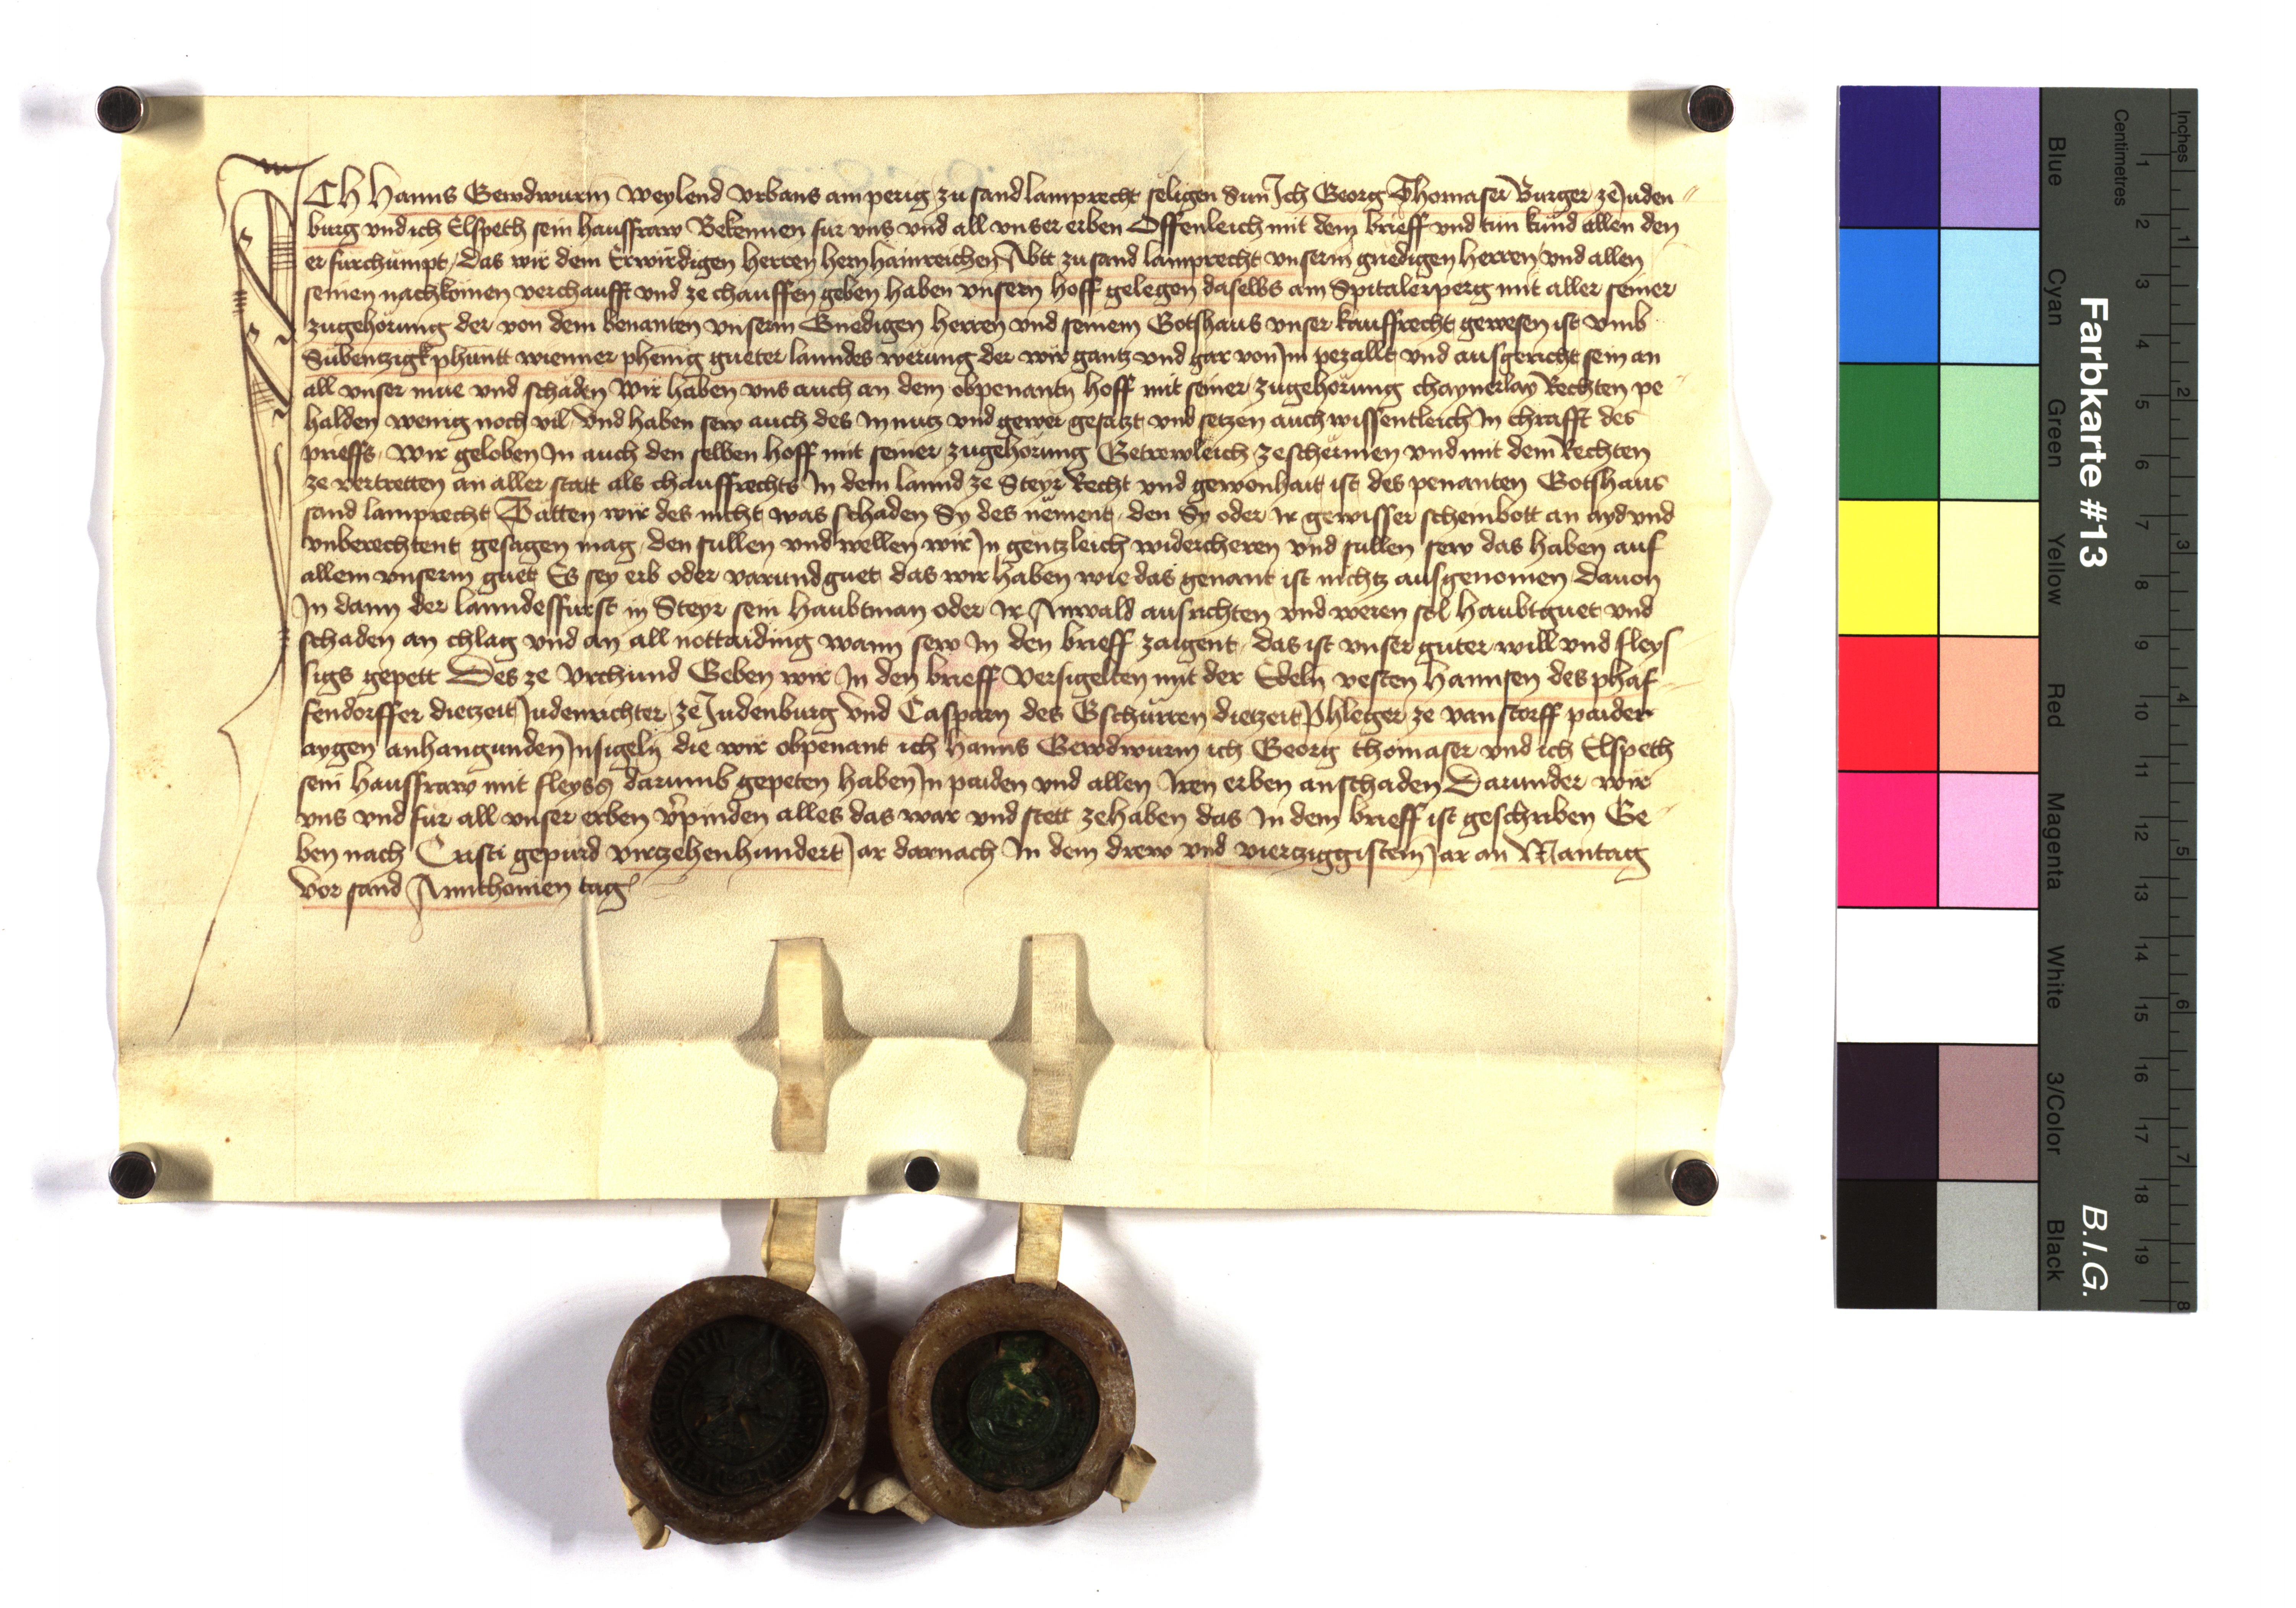 ICH Hanns Gewdwurm Weylend Vrbans am perig zu sand lamprecht seligen Sun Ich Georg Thomaser Burger ze Juden
burg vnd ich Elspeth sein hausfraw Bekennen fur vns vnd all vnser erben Offenleich mit dem brieff vnd tun kund allen den
er furchumpt, das wir dem Erwirdigen herren hern hainreichen Abtt zu sand lamprecht vnserm gnedigen herren vnd allen
seinen nachkomen verchaufft vnd ze chauffen geben haben vnsern hoff gelegen daselbs am Spitalerperg mit aller seiner
zugehorung der von dem benanten vnserm Gnedigen herren vnd seinem Gotshaus vnser kauffrecht gewesen ist vmb
Subentzigk phuntt wienner phenig gueter lanndes werung der wir gantz vnd gar von Im pezallt vnd ausgericht sein an
all vnser mue vnd schaden Wir haben vns auch an dem obpenantn hoff mit seiner zugehorung chaynerlay Rechten pe
halden wenig noch vil, Vnd haben sew auch des In nutz vnd gewer gesatzt vnd setzen auch wissentleich In chrafft des
prieffs, Wir geloben In auch den selben hoff mit seiner zugehorung Getrewleich ze schermen vnd mit dem Rechten
ze vertretten an aller statt als chauffrechts In dem lannd ze Steyr Recht vnd gewonhait ist des penanten Gotshaus
sand lamprecht Tatten wir des nicht was schaden Sy des nement, den Sy oder Ir gewisser scheinbott an ayd vnd
vnberechtent gesagen mag, den sullen vnd wellen wir In gentzleich widercheren vnd sullen sew das haben auf
allem vnserm guet Es sey erb oder varund guet das wir haben wie das genant ist nichtz ausgenomen, dauon
In dann der lanndesfurst in Steyr sein haubtman oder Ir Anwald ausrichten vnd weren sol haubtguet vnd
schaden an chlag vnd an all nottaiding wann sew In den brieff zaigent, das ist vnser guter will vnd fleys
sigs gepett Des ze Vrchund Geben wir In den brieff Versigelten mit der Edeln vesten Hannsen des phaf
fendorffer dietzeit Judenrichter ze Judenburg Vnd Casparn des Gschurren dietzeit Phleger ze vanstorff paider
aygen anhangunden Insigeln die wir obpenant ich Hanns Gewdwurm ich Georg thomaser vnd ich Elspeth
sein hausfraw mit fleyss darumb gepeten haben In paiden vnd allen Iren erben an schaden Darunder wir
vns vnd fur all vnser erben v͛pinden alles das war vnd stett ze haben das In dem brieff ist geschriben Ge
ben nach Cristi gepurd virtzehenhundert Jar darnach In dem drew vnd viertziggistem Jar an Mantag
Vor sand Annthonien tag
Farbkarte #13
B.I.G.
Blue Cyan Green Yellow Red Magenta White 3/Color Black
Centimetres 1 2 3 4 5 6 7 8 9 10 11 12 13 14 15 16 17 18 19
Inches 1 2 3 4 5 6 7 8